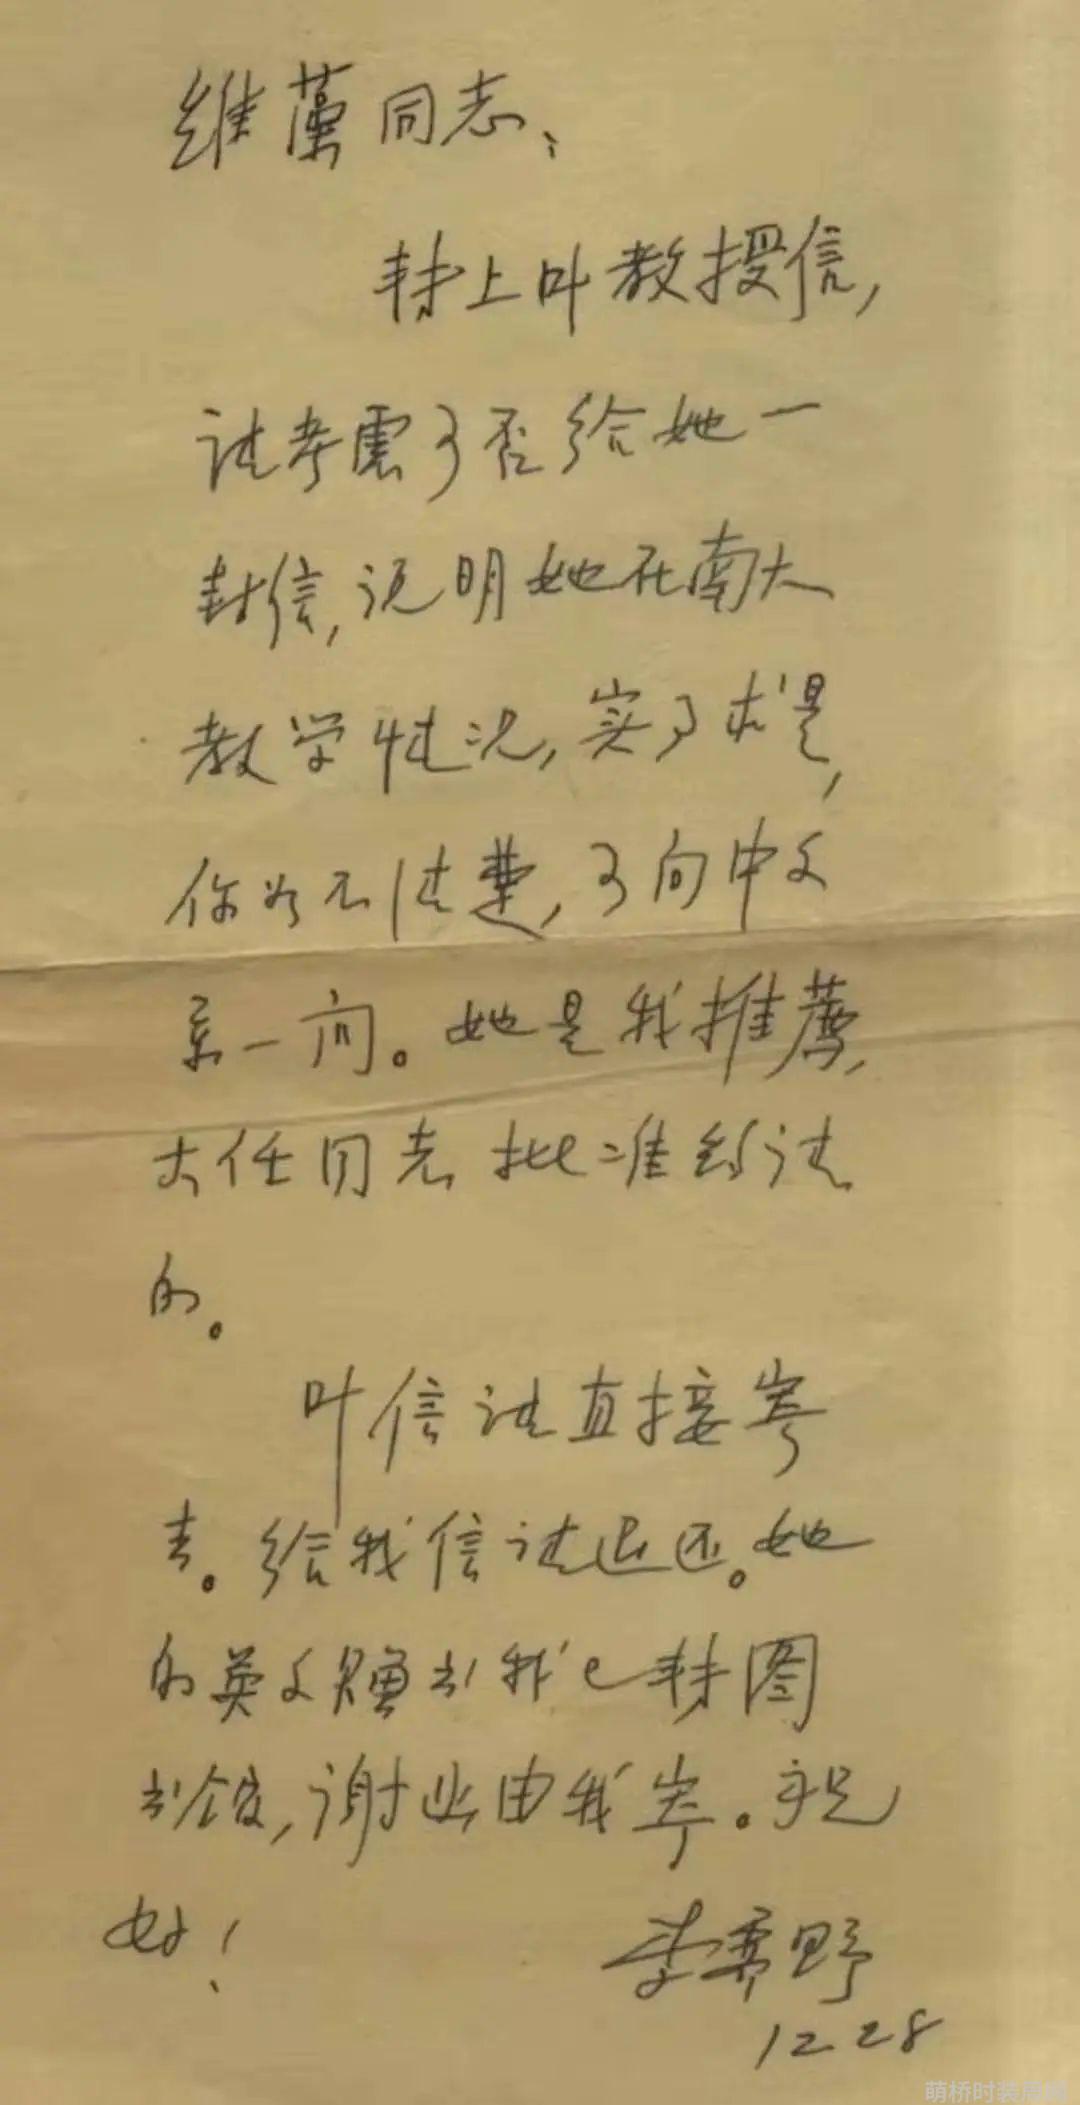 维藻同志、
转上叶教授信，
请考虑可否给她一
封信，说明她在南大
教学情况，实事求是，
你如不清楚，可问中文
系一问。她是我推荐，
大任同志批准约请
的。
叶信请直接寄
去。给我信请退还。她
的英文赠书我已转图
书馆，谢此由我寄。祝
好！
李霁野
12 28
萌桥时装周